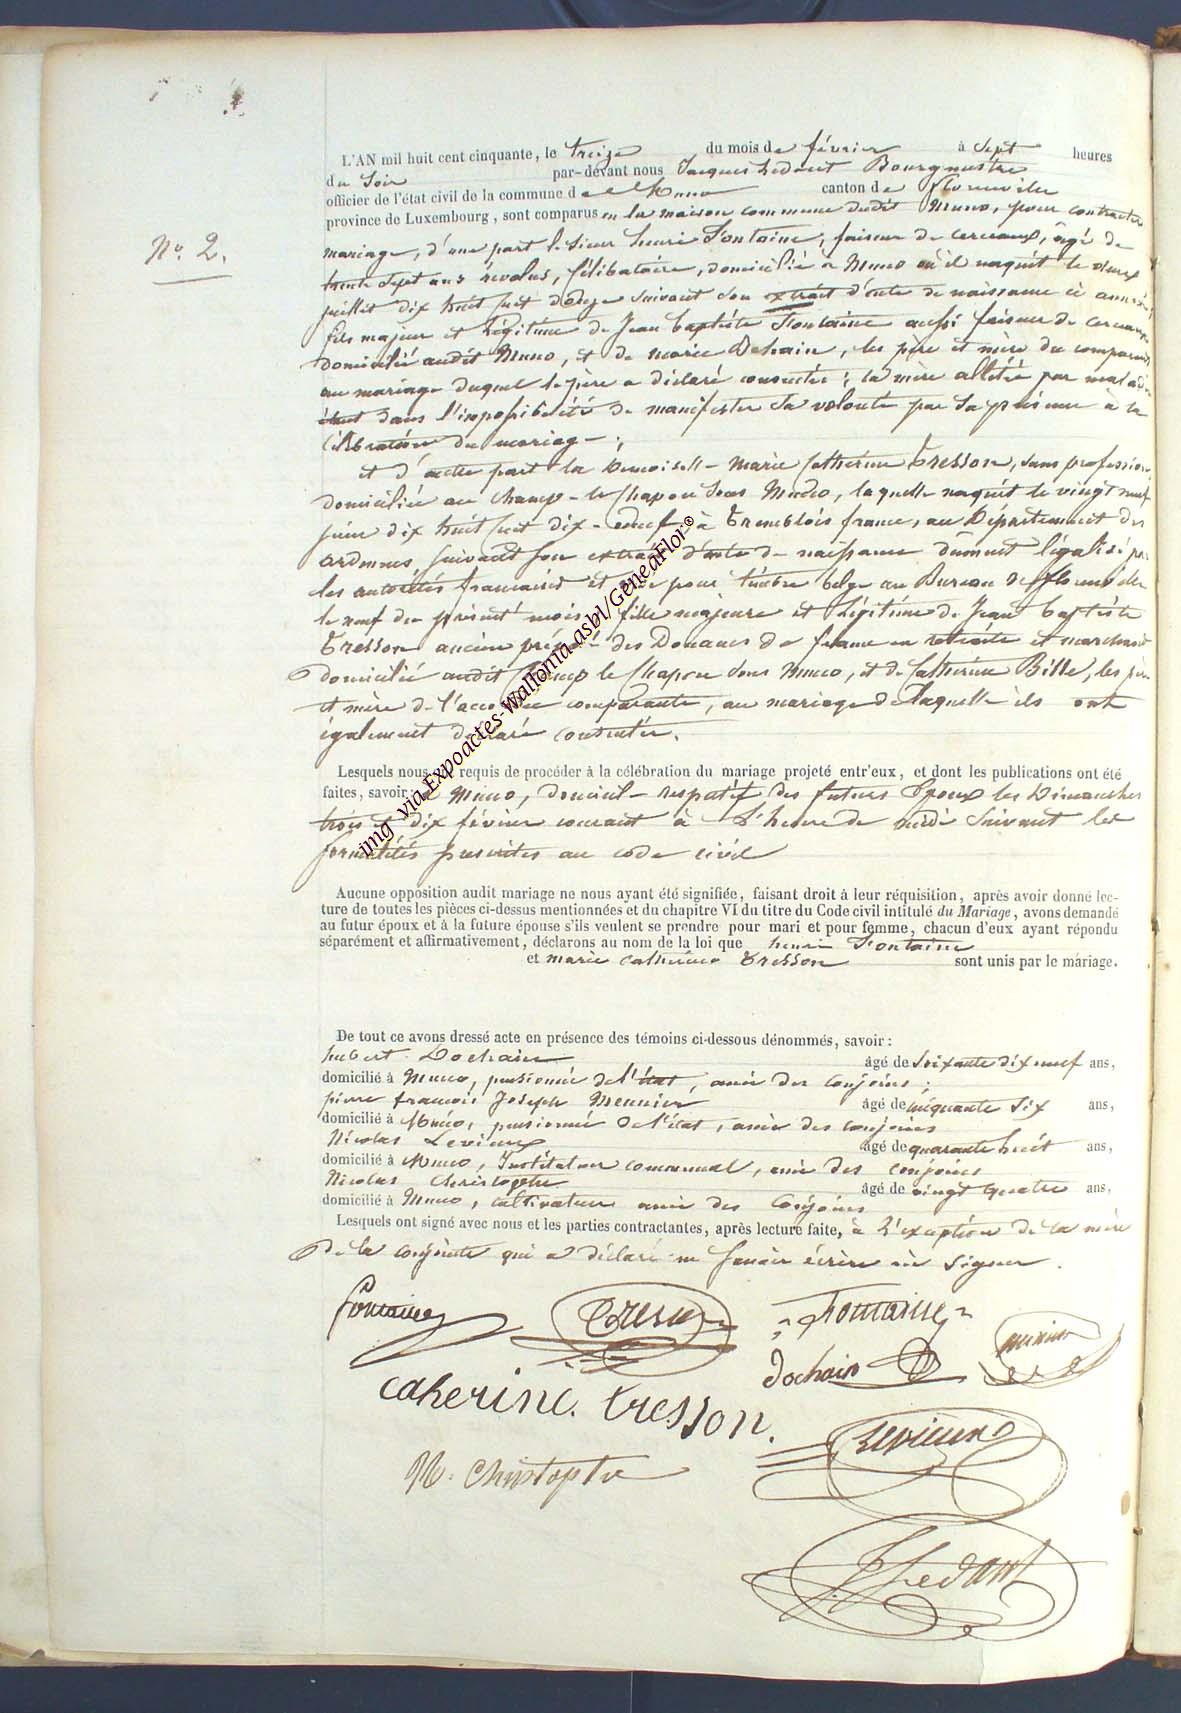 L'AN mil huit cent cinquante, le treize du mois de février à Sept heures
du Soir par-devant nous Jacques Ledant Bourgmestre
officier de l'état civil de la commune de Muno canton de Florenville
province de Luxembourg, sont comparus en la maison commune dudit Muno, pour contracter
No. 2.
mariage, d'une part le Sieur henri Fontaine, faiseur de cerceaux, âgé de
trente Sept ans révolus, Célibataire, domicilié à Muno où il naquit le
juillet dix huit cent douze suivant son extrait d'acte de naissance ci annexé,
fils majeur et légitime de Jean baptiste Fontaine aussi faiseur de cerceaux
domicilié audit Muno, et de marie Dehain, les père et mère du comparant
au mariage duquel le père a déclaré consentir; la mère alitée par maladie
étant dans l'impossibilité de manifester sa volonté par sa présence à la
Célébration du mariage;
et d'autre part la Demoiselle marie Catherine Tresson, sans profession,
domiciliée au champ-le Chapon Sous Muno, laquelle naquit le vingt neuf
juin dix huit cent dix-neuf à Tremblois france, au Département des
ardennes, suivant son extrait d'acte de naissance dûment légalisé par
les autorités françaises et visé pour timbre belge au Bureau de florenville
le neuf du présent mois, fille majeure et légitime de Jean baptiste
Tresson ancien préposé des Douanes de france en retraite et marchand
domicilié audit Champ le Chapon sous Muno, et de Catherine Bille, les père
et mère de l'accordée comparante, au mariage de laquelle ils ont
également déclaré consentir.
Lesquels nous ont requis de procéder à la célébration du mariage projeté entr'eux, et dont les publications ont été
faites, savoir: à Muno, domicile respectif des futurs Epoux les Dimanches
trois et dix février courant à l'heure de midi suivant les
formalités prescrites au code civil
Aucune opposition audit mariage ne nous ayant été signifiée, faisant droit à leur réquisition, après avoir donné lec-
ture de toutes les pièces ci-dessus mentionnées et du chapitre VI du titre du Code civil intitulé du Mariage, avons demandé
au futur époux et à la future épouse s'ils veulent se prendre pour mari et pour femme, chacun d'eux ayant répondu
séparément et affirmativement, déclarons au nom de la loi que henri Fontaine
et marie catherine Tresson sont unis par le mariage.
De tout ce avons dressé acte en présence des témoins ci-dessous dénommés, savoir:
hubert Dochain âgé de Soixante dix neuf ans,
domicilié à Muno, pensionné de l'état, ami des conjoins;
pierre françois Joseph Meunier âgé de cinquante Six ans,
domicilié à Muno, pensionné de l'état, ami des conjoins
Nicolas Levieux âgé de quarante huit ans,
domicilié à Muno, Instituteur communal, ami des conjoins
Nicolas Christophe âgé de vingt quatre ans,
domicilié à Muno, cultivateur ami des Conjoins
Lesquels ont signé avec nous et les parties contractantes, après lecture faite, à l'exception de la mère
de la conjointe qui a déclaré ne savoir écrire ni signer.
Fontaine Tresson Fontaine
dochain meunier
catherine. tresson.
Levieux
N. Christophe
J Ledant
img via Expoactes-Wallonia asbl/GeneaFlor®